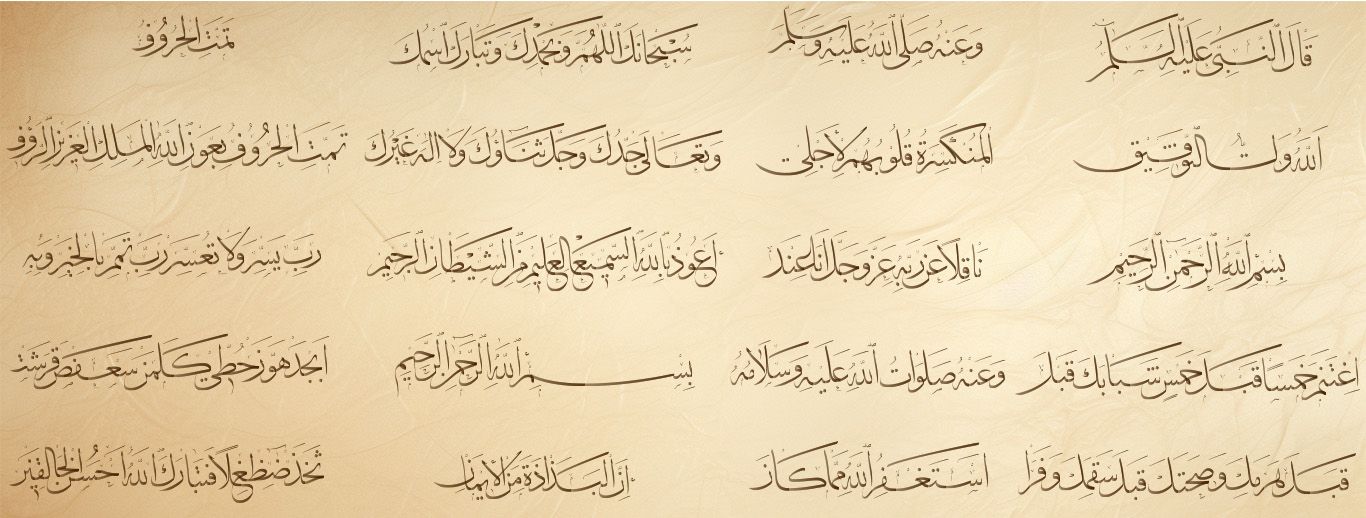 قال النبي عليه السلم
الله ولت التوفيق
بسم الله الرحمن الرحيم
اغتنم خمسا قبل خمس شبابك قبل
قبل هرمك وصحتك قبل سقمك وفرا
وعنه صلى الله عليه وسلم
المنكسرة قلوبهم لأجلي
ناقلا عن ربه عز وجل انا عند
وعنه صلوات الله عليه وسلامه
استغفر الله مما كان
سبحانك اللهم وبحمدك وتبارك اسمك
وتعالى جدك وجل ثناؤك ولا اله غيرك
أعوذ بالله السميع العليم من الشيطان الرجيم
بسم الله الرحمن الرحيم
إن البذاذة من الايمان
تمت الحروف
تمت الحروف بعون الله الملك العزيز الرؤف
رب يسر ولا تعسر رب تمم بالخير وبه
ابجد هوز حطي كلمن سعفص قرشت
ثخذ ضظغلا فتبارك الله احسن الخالقين